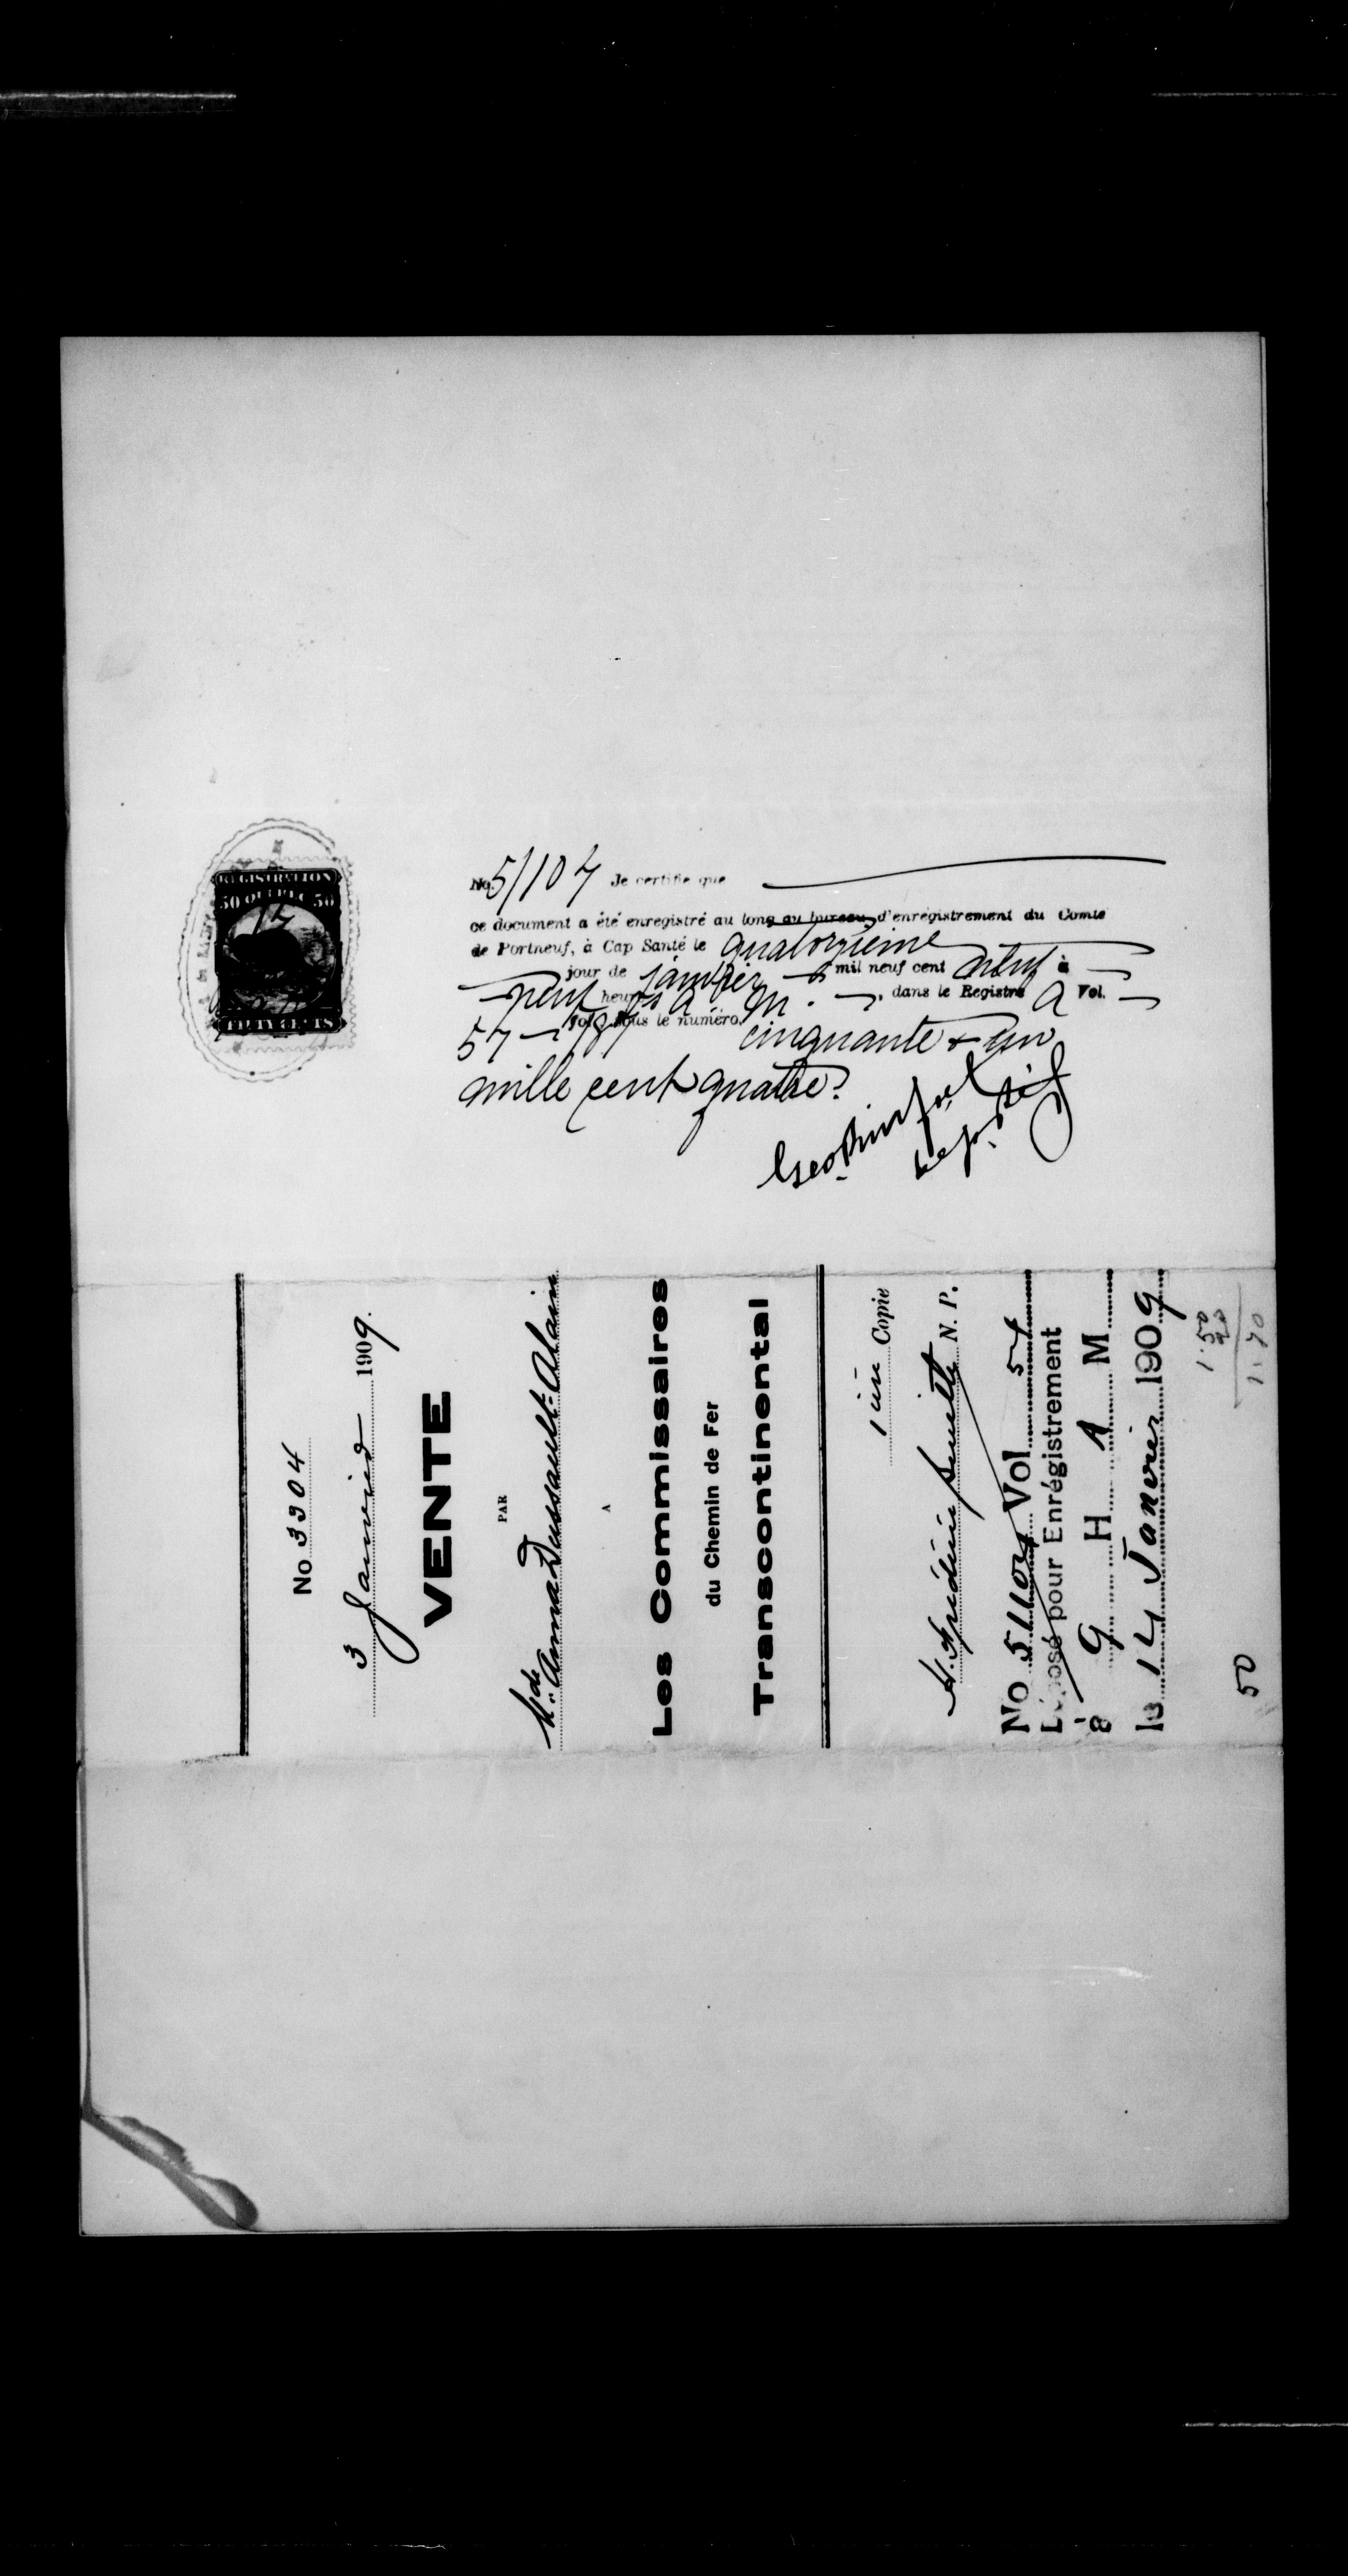 REGISTRATION
50 QUEBEC 50
FIFTY CENTS
No. 51104 Je certifie que
ce document a été enregistré au long au bureau d'enregistrement du Comté
de Portneuf, à Cap Santé le quatorzième
jour de janvier mil neuf cent neuf à
neuf heures a. m., dans le Registre A Vol.
57 folio sous le numéro. cinquante & un
mille cent quatre.
No 3304
3 Janvier 1909.
VENTE
PAR
Mde Anna Dussault-Alain
A
Les Commissaires
du Chemin de Fer
Transcontinental
1ière Copie
N. P.
No 51104 Vol 57
Déposé pour Enrégistrement
à 9 H A M
le 14 Janvier 1909
1.50
1.70
50